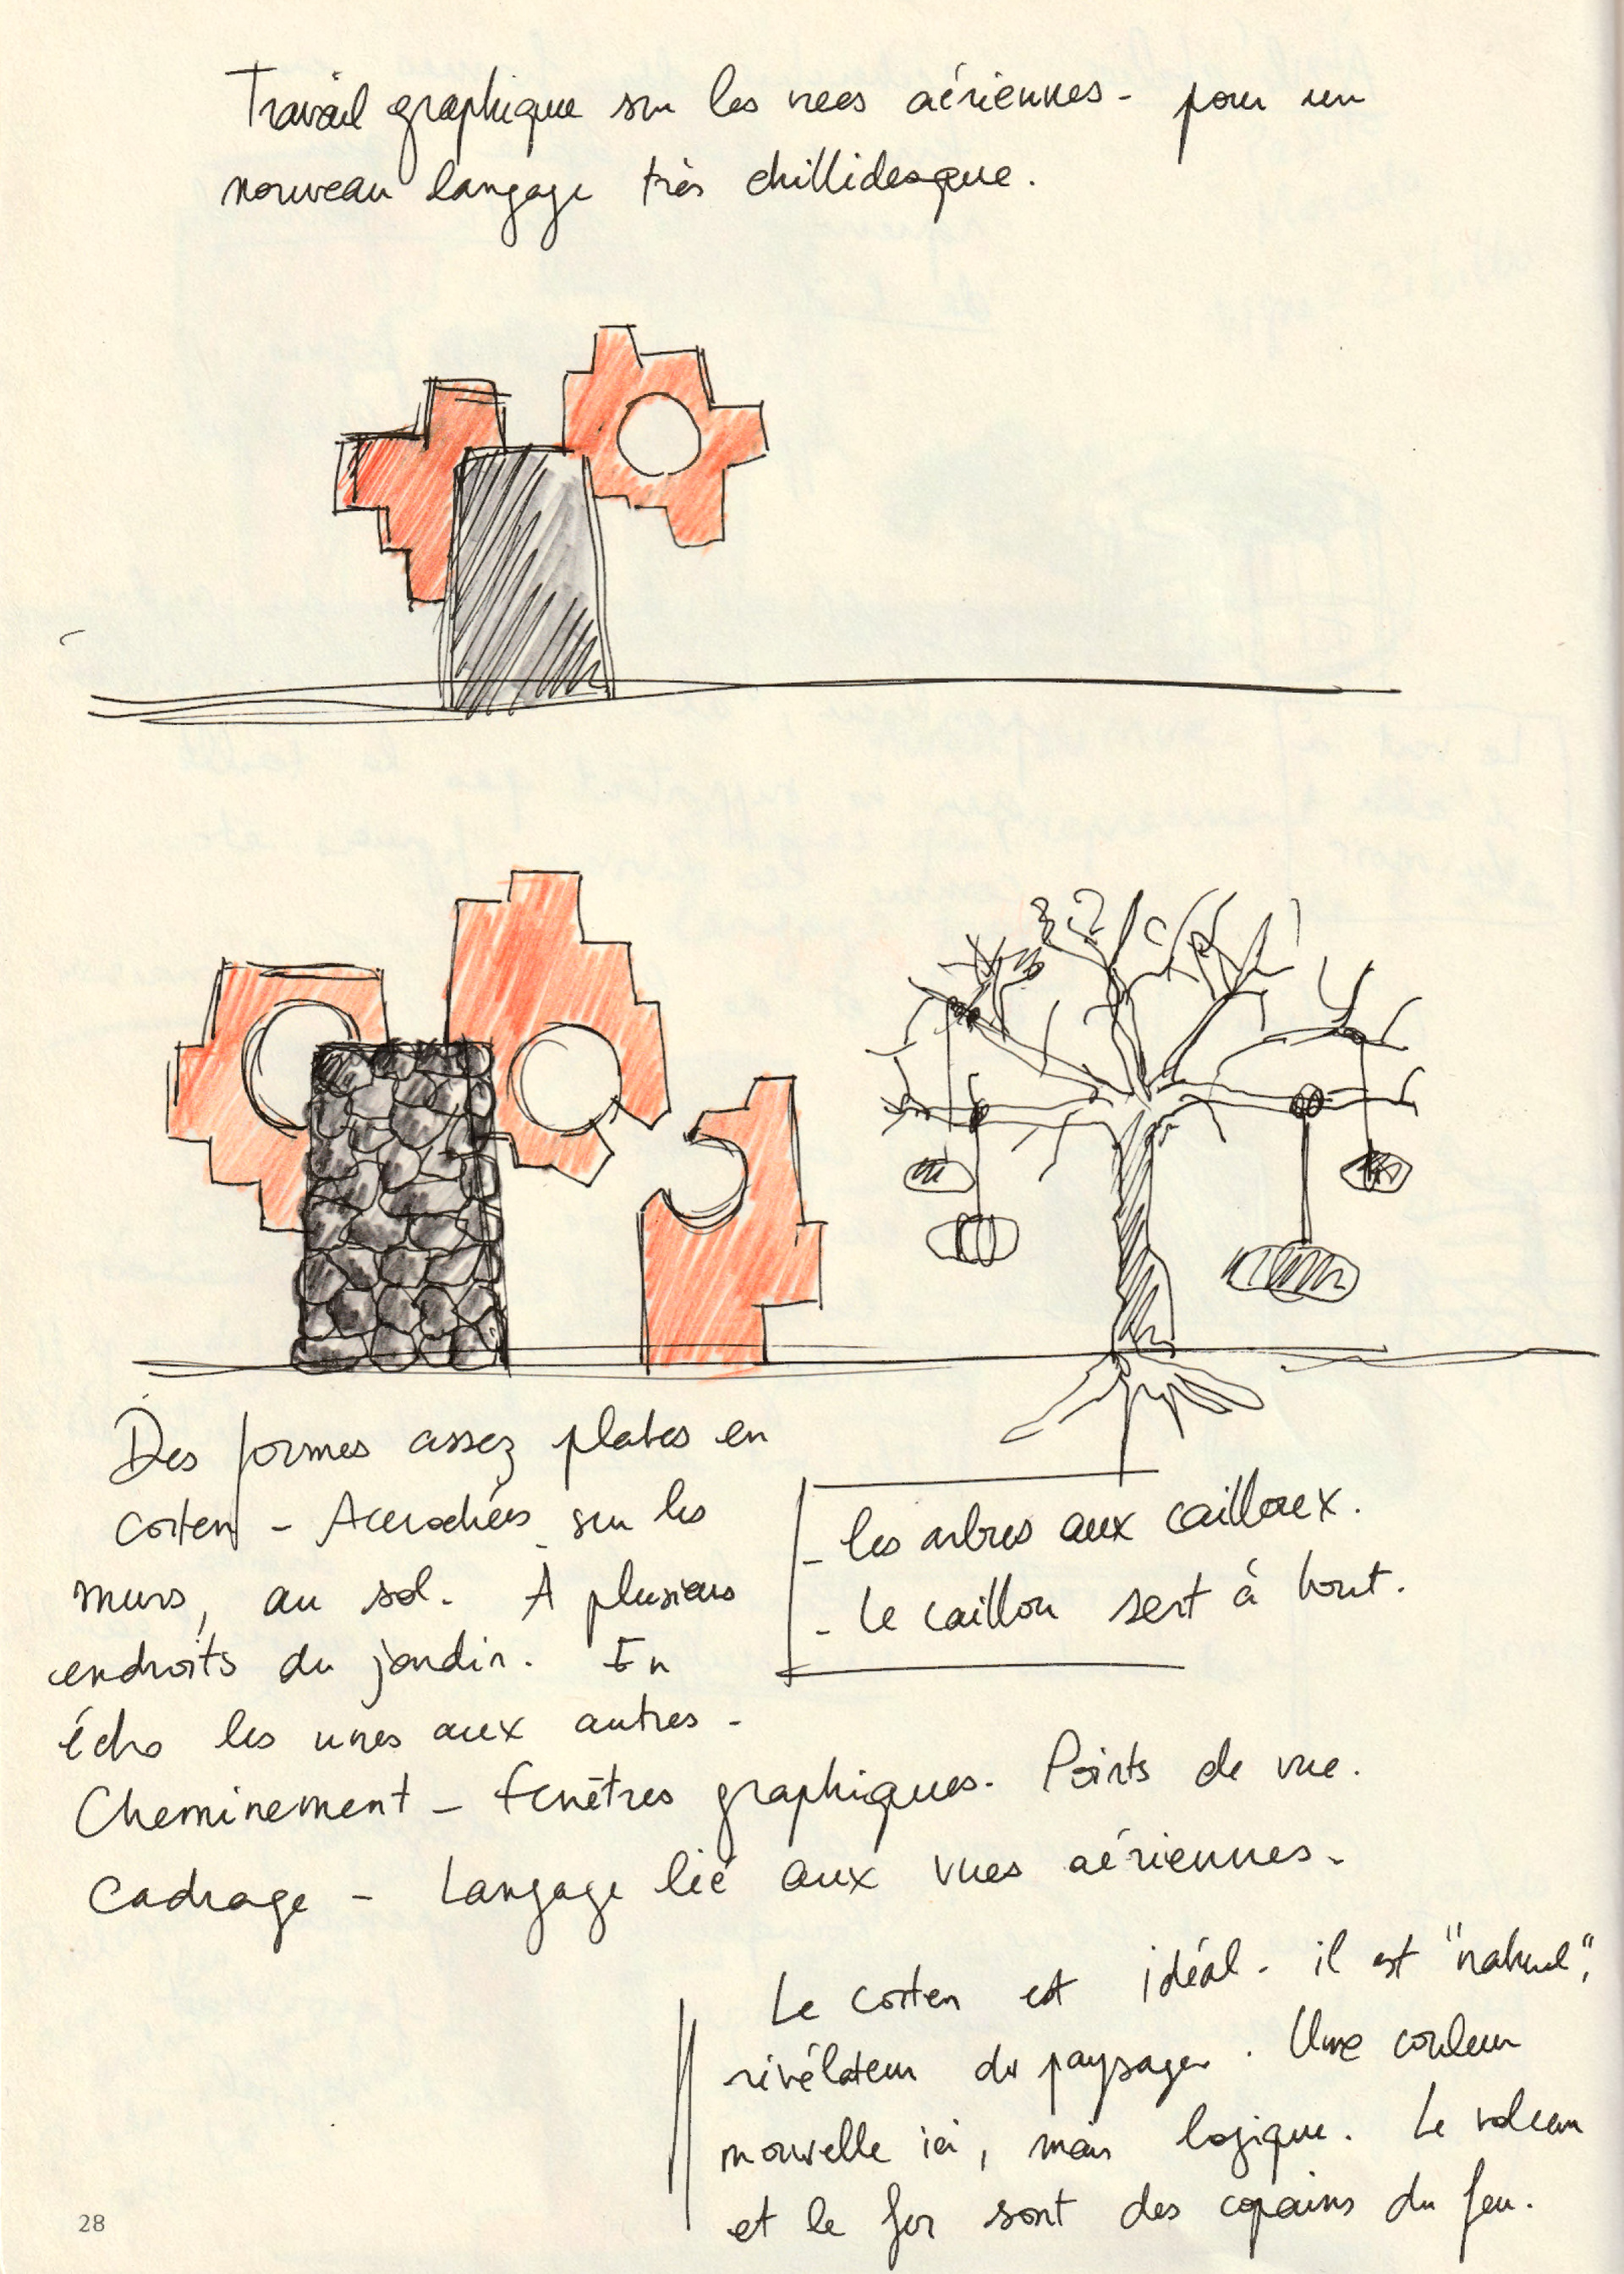 Travail graphique sur les vues aériennes - pour un
nouveau langage très chillidesque.
Des formes assez plates en
corten - Accrochées sur les
murs, au sol. A plusieurs
endroits du jardin. En
écho les unes aux autres -
- les arbres aux cailloux.
- le caillou sert à tout.
Cheminement - fenêtres graphiques. Points de vue.
Cadrage - Langage lié aux vues aériennes -
Le corten est idéal - il est "naturel",
révélateur du paysage. Une couleur
nouvelle ici, mais logique. Le volcan
et le fer sont des copains du feu.
28